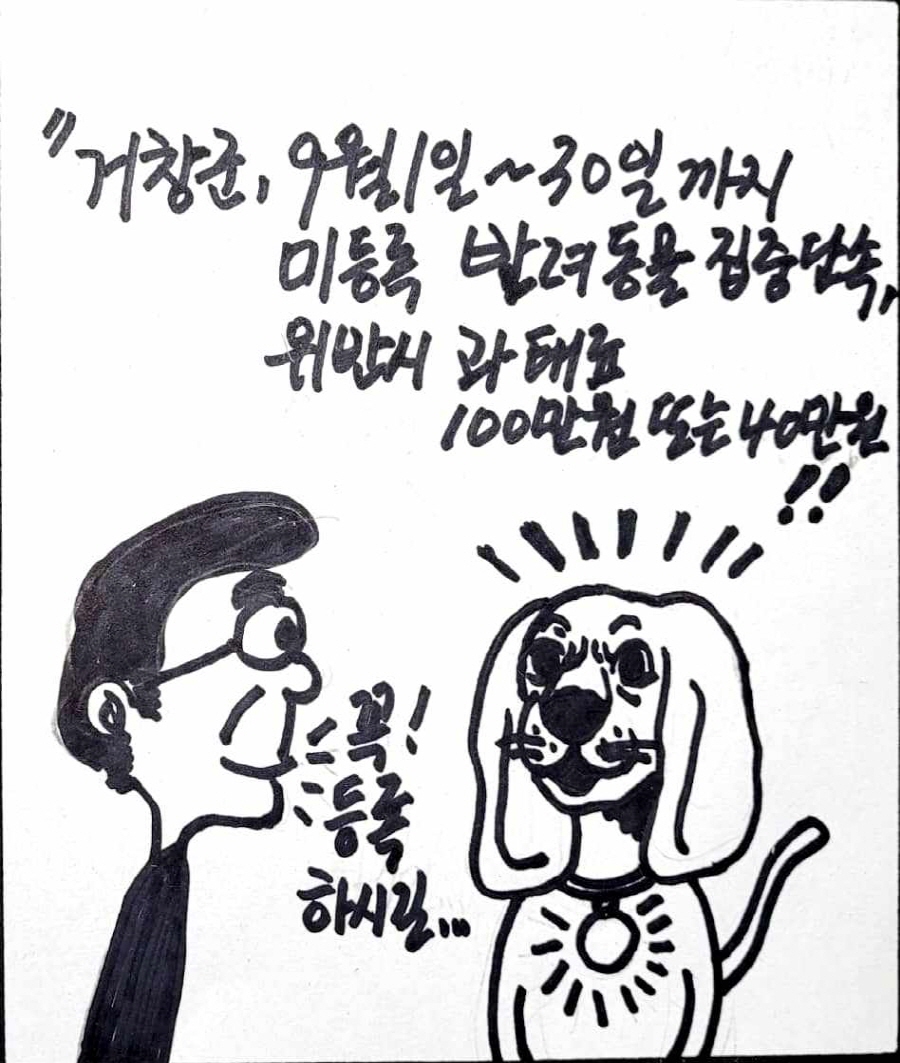 "거창군, 9월1일~30일까지
미등록 반려동물 집중단속,
위반시 과태료
100만원 또는 40만원
!!
꼭!
등록
하시길...